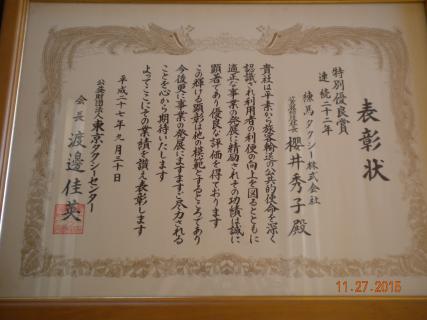 表彰状
特別優良賞
連続二十二年
練馬タクシー株式会社
代表取締役社長 櫻井秀子殿
貴社は平素から旅客輸送の公共的使命を深く
認識され利用者の利便の向上を図るとともに
適正な事業の発展に精励されその功績は誠に
顕著であり優良な評価を得ております
この輝ける顕彰は他の模範とするところであり
今後更に事業の発展にますますご尽力される
ことを心から期待いたします
よってここにその業績を讃え表彰します
平成二十七年九月三十日
公益財団法人東京タクシーセンター
会長 渡邉佳英
11.27.2015